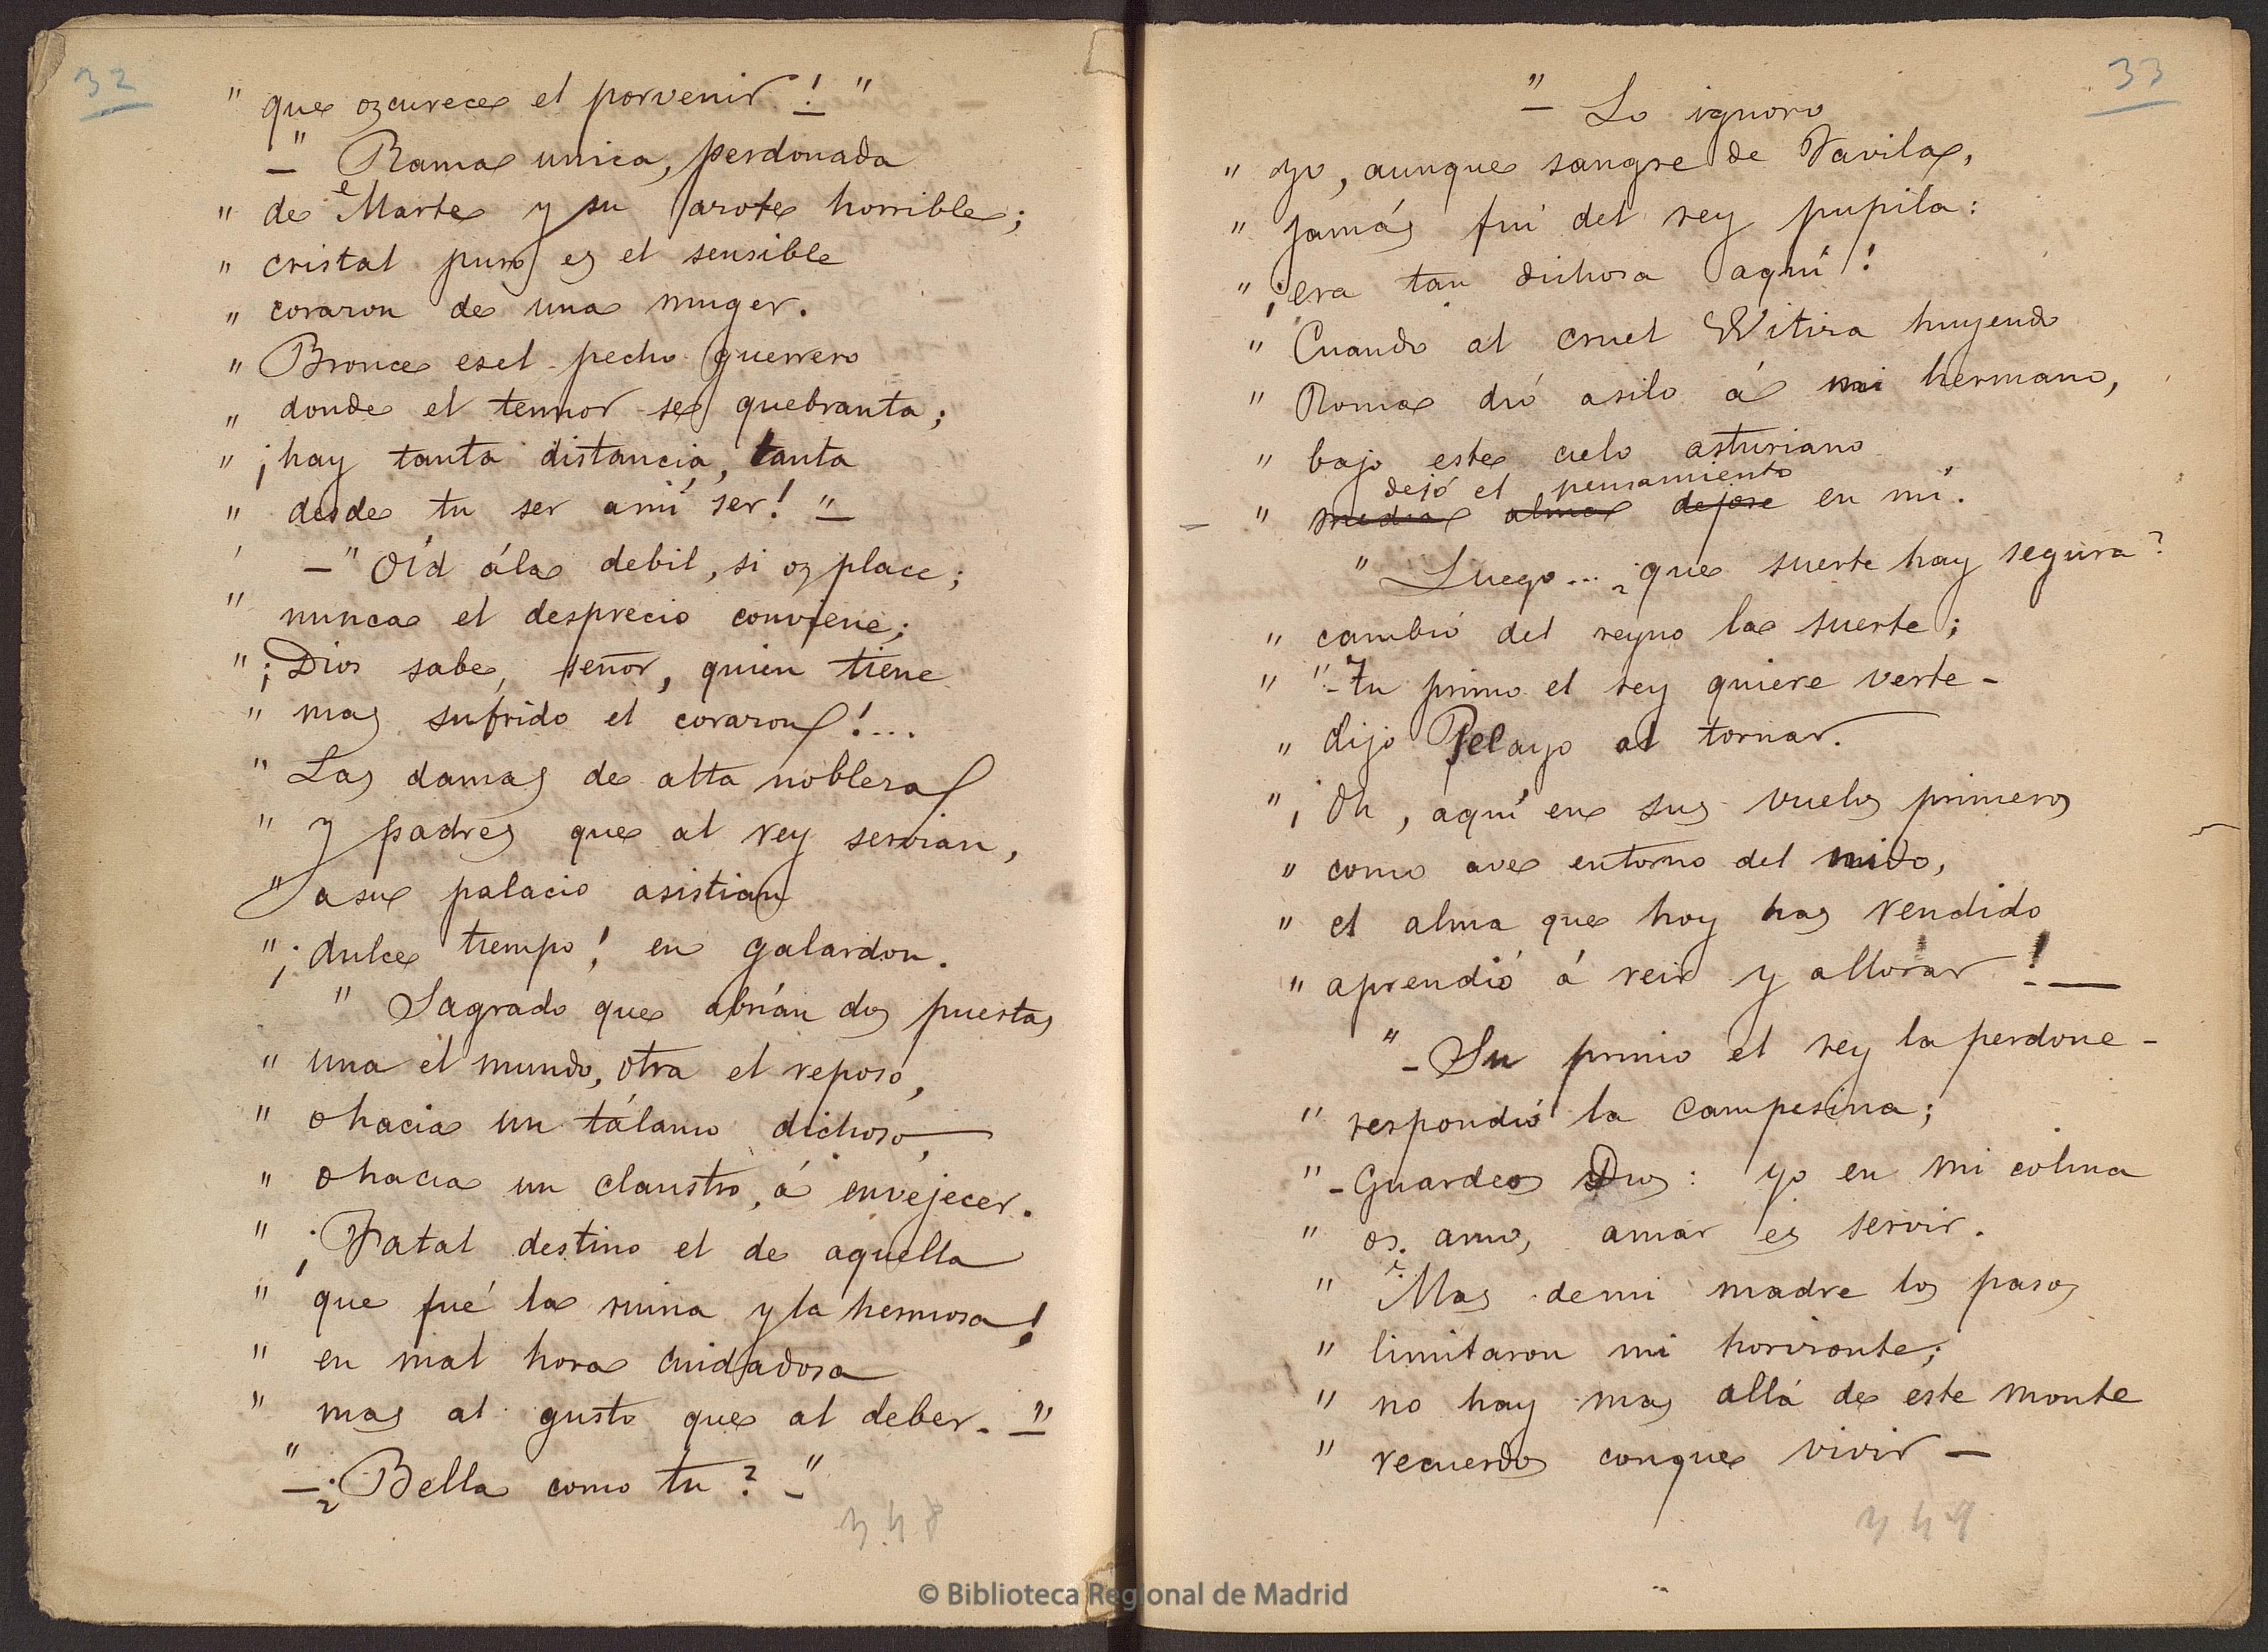 32
" que oscurece el porvenir! "
—" Rama unica, perdonada
" de Marte y su azote horrible;
" cristal puro es el sensible
" corazon de una muger.
" Bronce es el pecho guerrero
" donde el temor se quebranta;
" ¡hay tanta distancia, tanta
" desde tu ser a mi ser! "—
—" Oíd á la debil, si os place;
" nunca el desprecio conviene;
" ¡Dios sabe, señor, quien tiene
" mas sufrido el corazon!...
" Las damas de alta nobleza
" y padres que al rey servian,
" a su palacio asistian
" ¡dulce tiempo! en galardon.
" Sagrado que abrían dos puertas
" una el mundo, otra el reposo,
" o hacia un tálamo dichoso,
" o hacia un claustro, á envejecer.
" ¡Fatal destino el de aquella
" que fué la ruina y la hermosa!
" en mal hora cuidadosa
" mas al gusto que al deber. "—
"— ¿Bella como tu? —"
348
33
"— Lo ignoro
" yo, aunque sangre de Favila,
" jamás fuí del rey pupila:
" ¡era tan dichosa aquí!
" Cuando al cruel Witiza huyendo
" Roma dió asilo á mi hermano,
" bajo este cielo asturiano
dejó el pensamiento
— " media alma dejose en mí.
" Luego... ¿que suerte hay segura?
" cambió del reyno la suerte;
" "- Tu primo el rey quiere verte -
" dijo Pelayo al tornar.
" ¡Oh, aquí en sus vuelos primeros
" como ave entorno del nido,
" el alma que hoy has vendido
" aprendió á reir y a llorar! —
" - Su primo el rey la perdone -
" respondió la campesina;
" - Guardeos Dios: yo en mi colina
" os amo, amar es servir.
" Mas de mi madre los pasos
" limitaron mi horizonte;
" no hay mas allá de este monte
" recuerdos conque vivir —
349
© Biblioteca Regional de Madrid